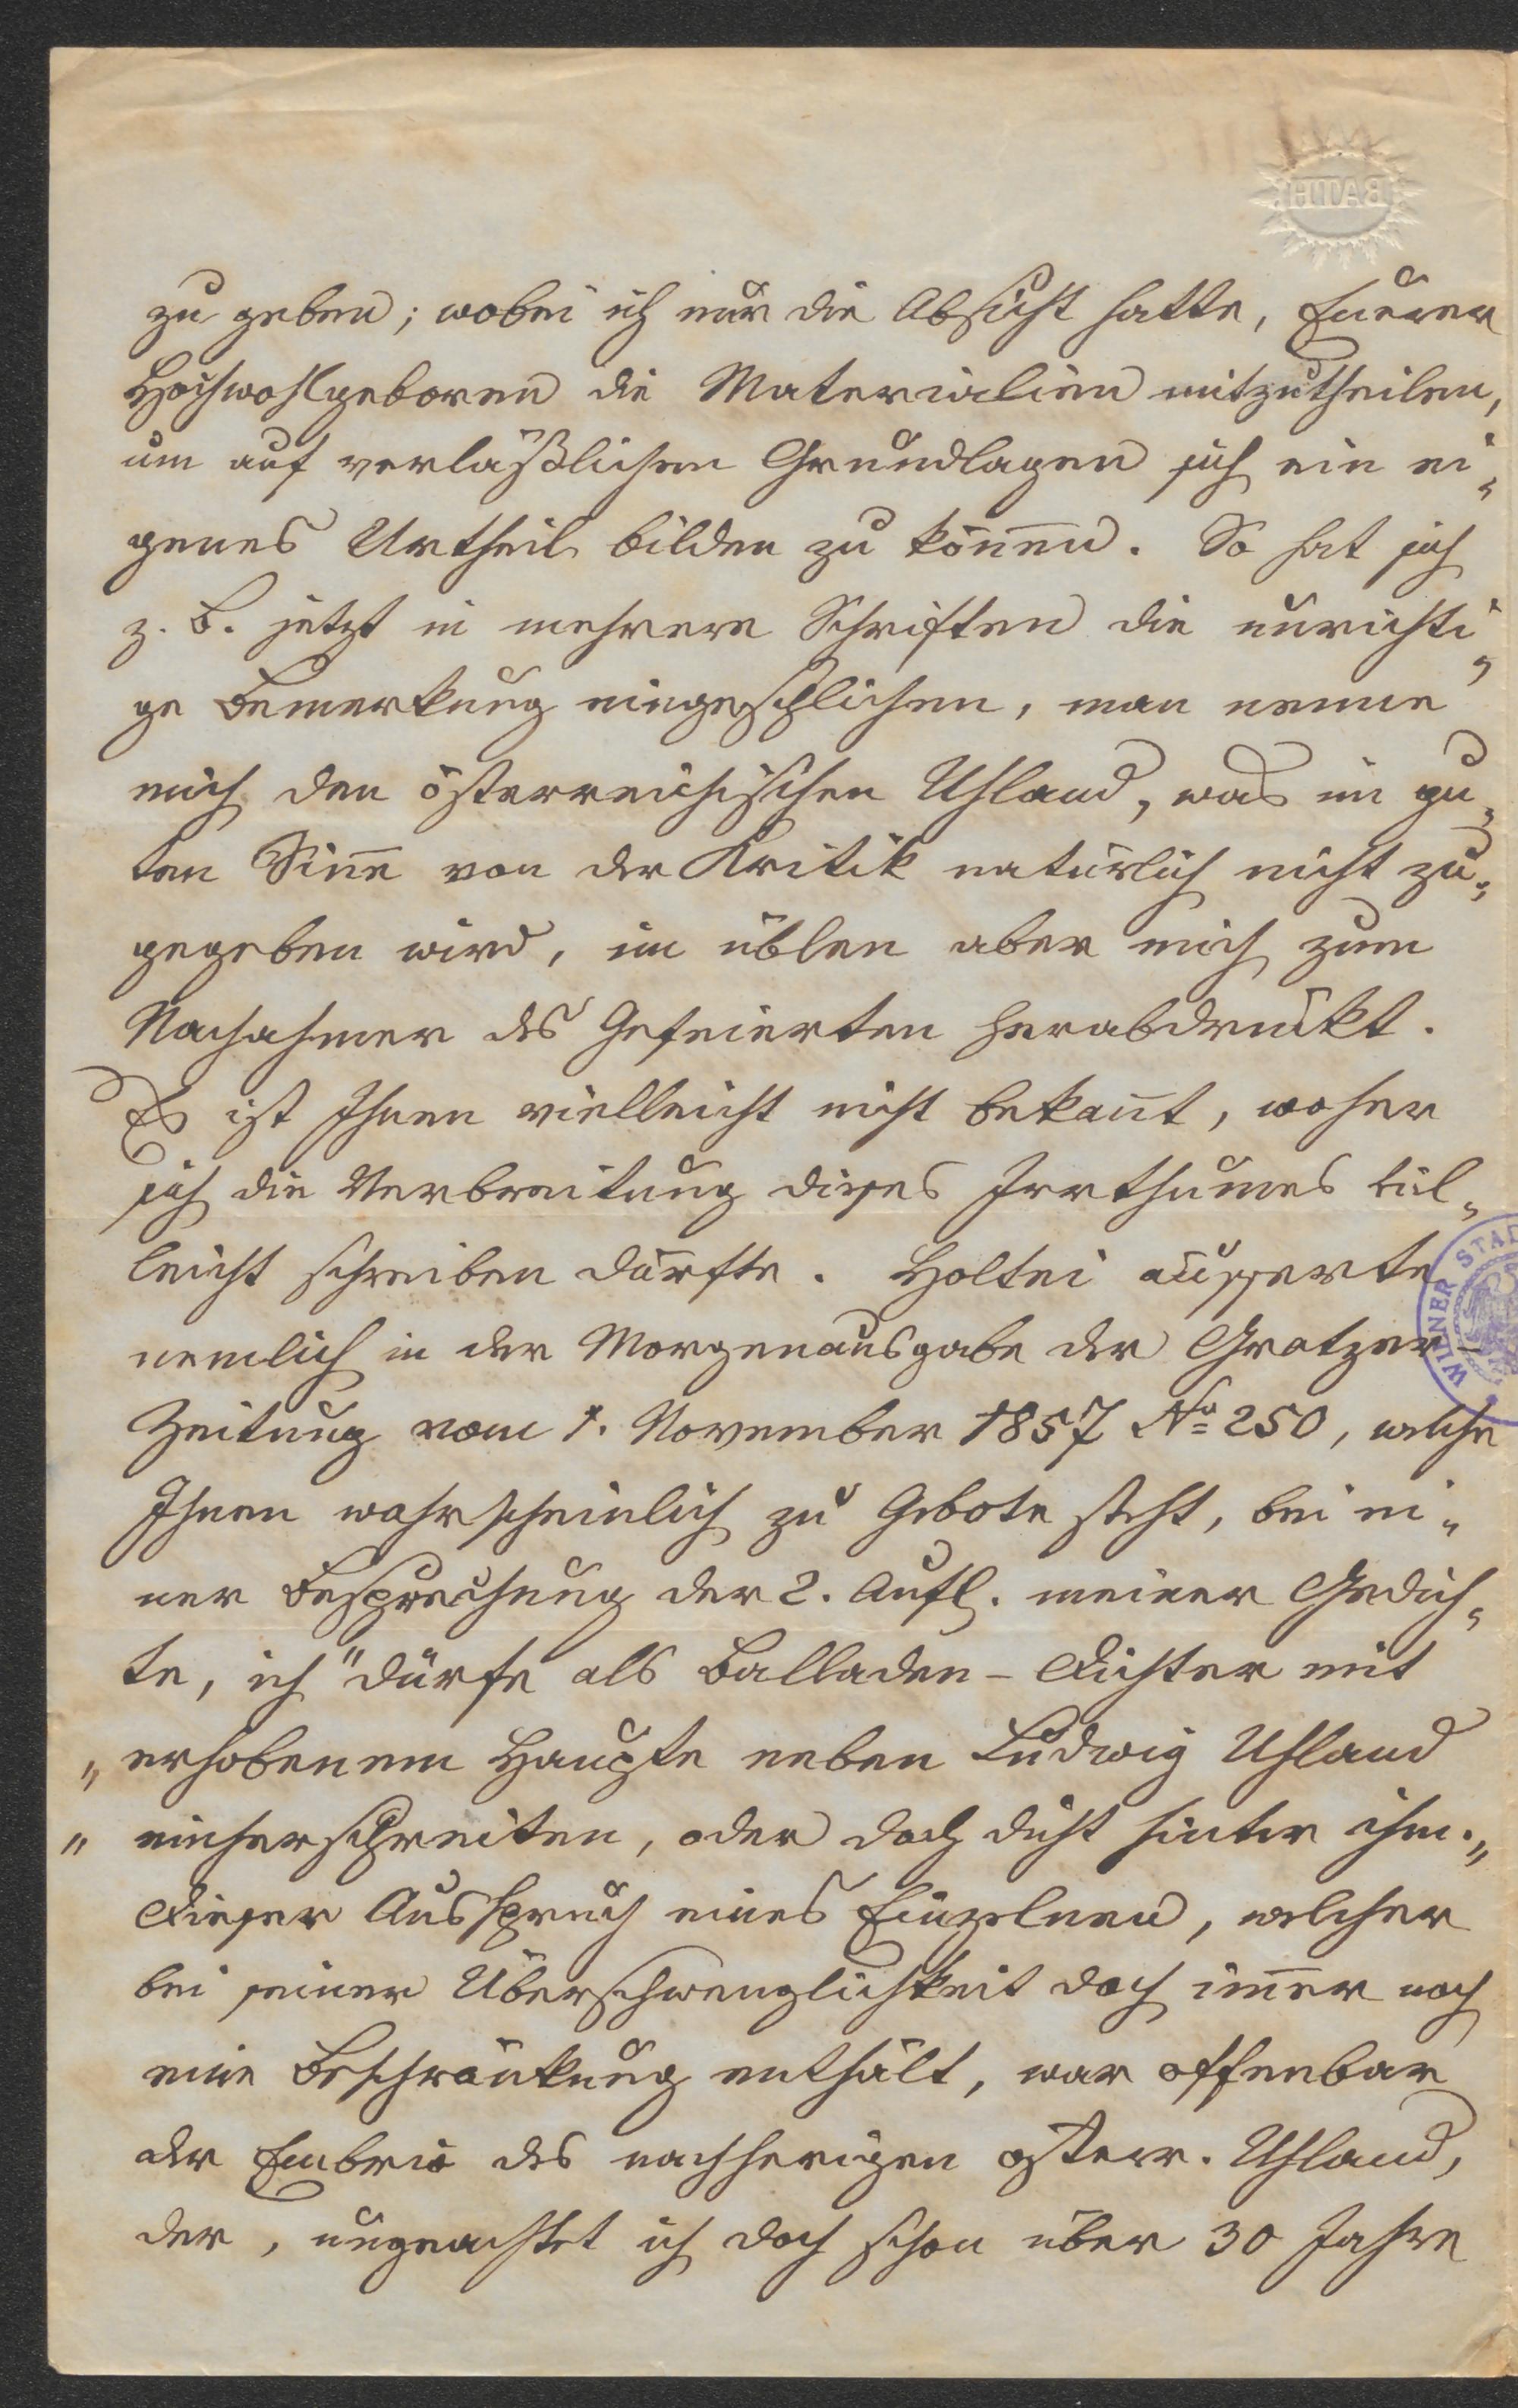 BATH
zu geben; wobei ich nur die Absicht hatte, Euerer
Hochwohlgeboren die Materialien mitzutheilen,
um auf verläßlichen Grundlagen sich ein ei„
genes Urtheil bilden zu können. So hat sich
z. B. jetzt in mehrere Schriften die unrichti„
ge Bemerkung eingeschlichen, man nenne
mich den österreichischen Uhland, was im gu„
ten Sinne von der Kritik natürlich nicht zu„
gegeben wird, im üblen aber mich zum
Nachahmer des Gefeierten herabdrückt.
Es ist Ihnen vielleicht nicht bekannt, woher
sich die Verbreitung dieses Irrthumes viel„
leicht schreiben dürfte. Holtei äusserte
nemlich in der Morgenausgabe der Gratzer-
Zeitung vom 1. November 1857 No 250, welche
Ihnen wahrscheinlich zu Gebote steht, bei ei„
ner Besprechung der 2. Aufl. meiner Gedich„
te, ich "dürfe als Balladen-Dichter mit
„ erhobenem Haupte neben Ludwig Uhland
„ einherschreiten, oder doch dicht hinter ihm.„
Dieser Ausspruch eines Einzelnen, welcher
bei seiner Überschwenglichkeit doch immer noch
eine Beschränkung enthält, war offenbar
der Embrio des nachherigen österr. Uhland,
der, ungeachtet ich doch schon über 30 Jahre
WIENER STAD